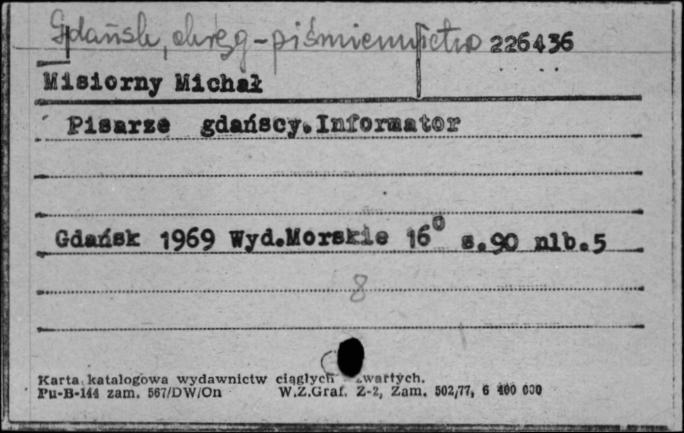 Gdańsk, okręg - piśmiennictwo 226436
Misiorny Michał
Pisarze gdańscy.Informator
Gdańsk 1969 Wyd.Morskie 16⁰ s.90 nlb.5
8
Karta katalogowa wydawnictw ciągłych zwartych.
Pu-B-144 zam. 567/DW/On W.Z.Graf. Z-2, Zam. 502/77, 6 400 000